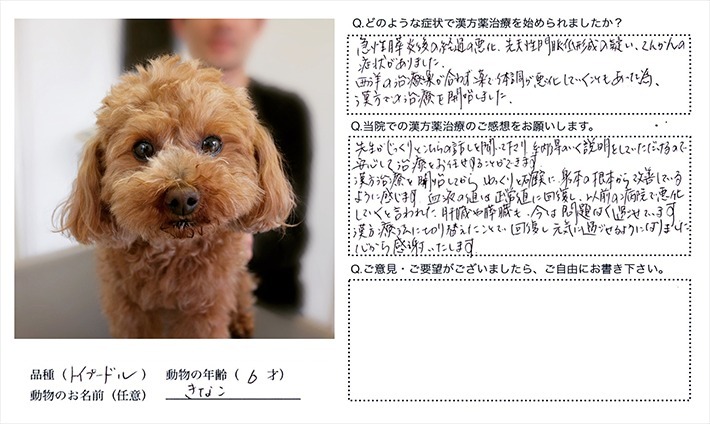 Q.どのような症状で漢方薬治療を始められましたか？
急性膵炎後の経過の悪化、先天性門脈低形成の疑い、てんかんの
症状がありました。
西洋の治療薬が合わず薬で体調が悪化していくこともあった為、
漢方での治療を開始しました。
Q.当院での漢方薬治療のご感想をお願いします。
先生がじっくりとこちらの話しを聞いて下さり、説明をしていただけるので
安心して治療をお任せすることができます。
漢方治療を開始してから、ゆっくりと確実に、身体の根本から改善している
ように感じます。血液の値は正常値に回復し、以前の病院で悪化
していくと言われた肝臓や膵臓も、今は問題なく過ごせています。
漢方療法に切り替えたことで、回復し元気に過ごせるようになりました。
心から感謝いたします。
Q.ご意見・ご要望がございましたら、ご自由にお書き下さい。
品種（トイプードル） 動物の年齢（ 6 才）
動物のお名前（任意） きなこ